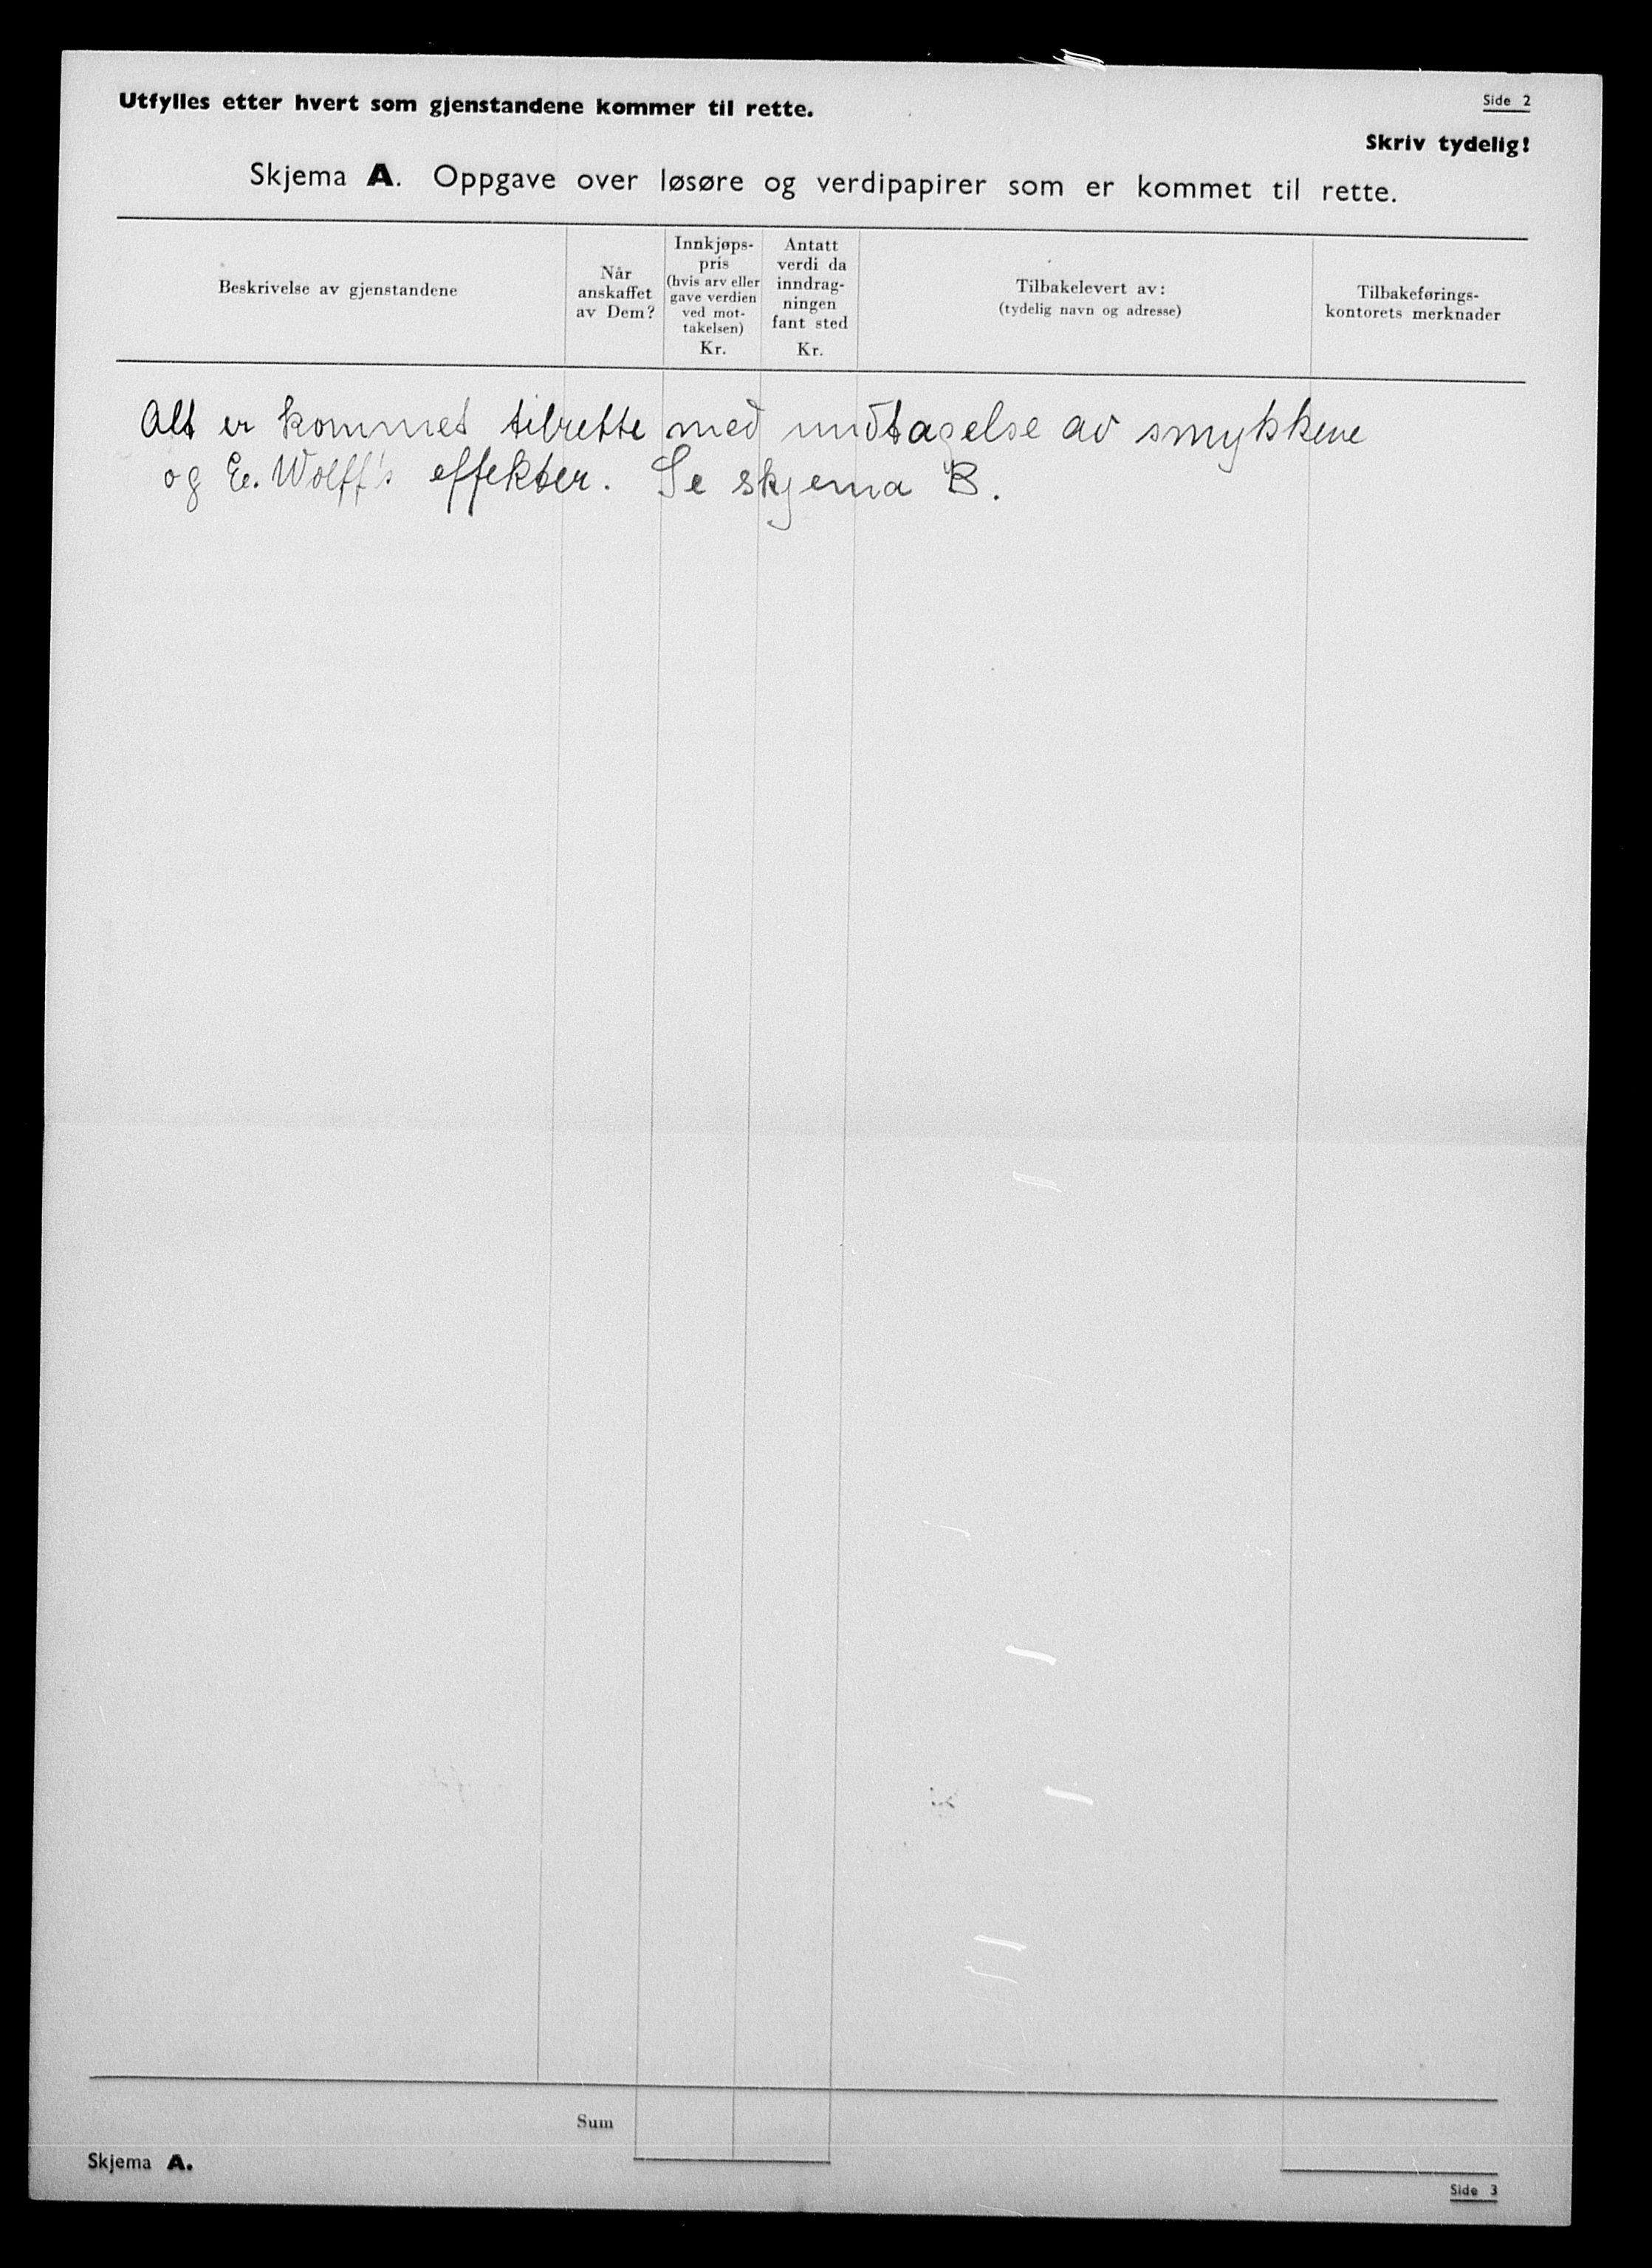 Utfylles etter hvert som gjenstandene kommer til rette.
Side 2
Skriv tydelig!
Skjema A. Oppgave over løsøre og verdipapirer som er kommet til rette.
Beskrivelse av gjenstandene
Når
anskaffet
av Dem?
Innkjøps-
pris
(hvis arv eller
gave verdien
ved mot-
takelsen)
Kr.
Antatt
verdi da
inndrag-
ningen
fant sted
Kr.
Tilbakelevert av:
(tydelig navn og adresse)
Tilbakeførings-
kontorets merknader
Alt er kommet tilrette med undtagelse av smykkene
og Wolff's effekter. Se skjema B.
Sum
Skjema A.
Side 3